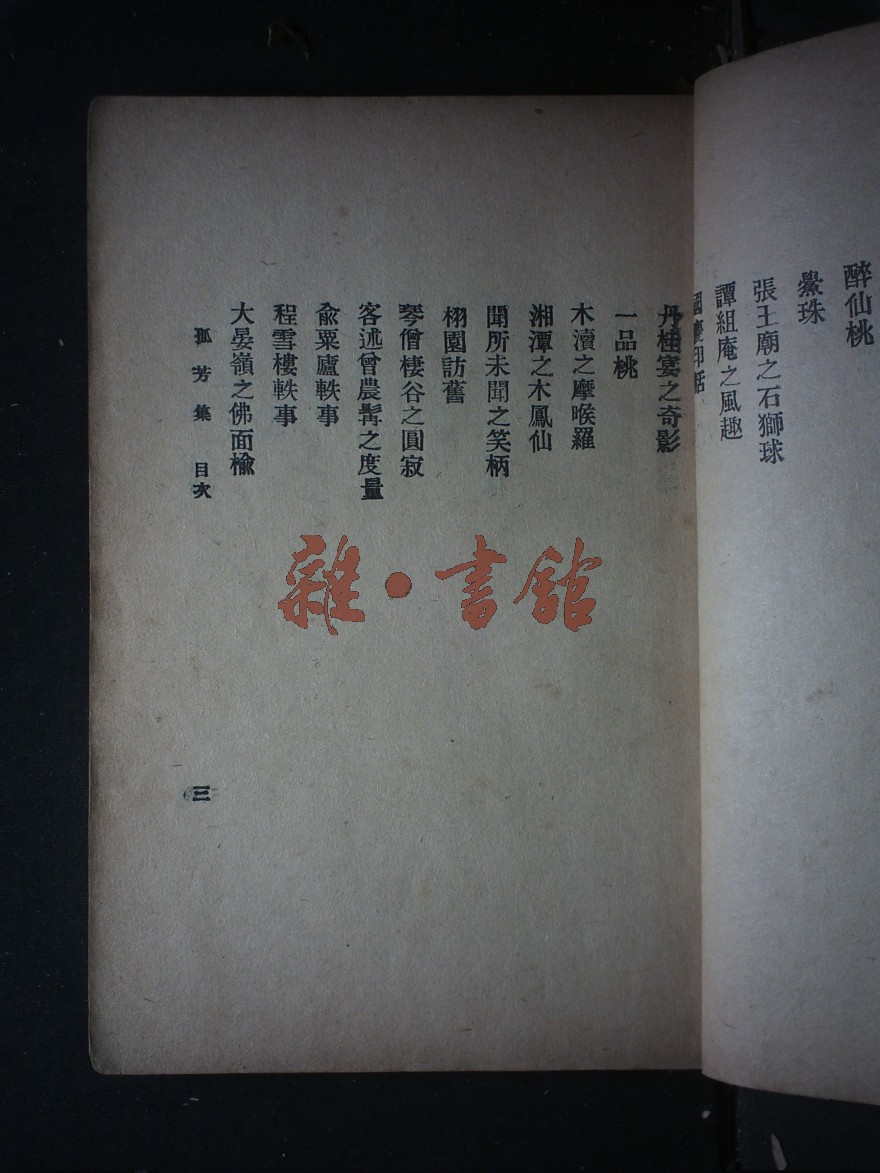 醉仙桃
纍珠
張王廟之石獅球
譚組庵之風趣
國慶印話
丹桂宴之奇影
一品桃
木瀆之摩睺羅
湘潭之木鳳仙
聞所未聞之笑柄
栩園訪舊
琴僧棲谷之圓寂
客述曾農髯之度量
俞粟廬軼事
程雪樓軼事
大晏嶺之佛面楡
孤芳集 目次
三
雜·書館